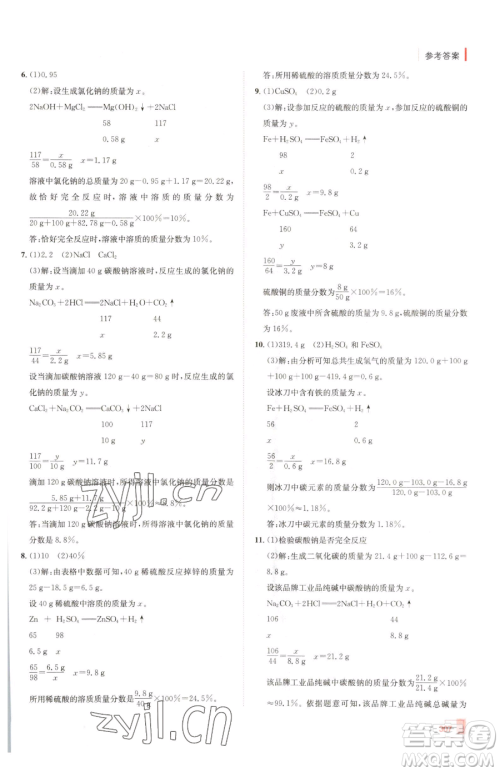 参考答案
6. (1)0.95
(2)解：设生成氯化钠的质量为 x。
2NaOH+MgCl₂══Mg(OH)₂↓+2NaCl
58 117
0.58 g x
117/58=x/0.58 g x=1.17 g
溶液中氯化钠的总质量为 20 g-0.95 g+1.17 g=20.22 g，
故恰好完全反应时，溶液中溶质的质量分数为
20.22 g/(100 g+100 g+82.78 g-0.58 g)×100%=10%。
答：恰好完全反应后，溶液中溶质的质量分数为 10%。
7. (1)2.2 (2)NaCl CaCl₂
(3)解：设当滴加 40 g 碳酸钠溶液时，反应生成的氯化钠的
质量为 x。
Na₂CO₃+2HCl══2NaCl+H₂O+CO₂↑
117 44
x 2.2 g
117/44=x/2.2 g x=5.85 g
设当滴加碳酸钠溶液 120 g-40 g=80 g 时，反应生成的氯
化钠的质量为 y。
CaCl₂+Na₂CO₃══CaCO₃↓+2NaCl
100 117
10 g y
117/100=y/10 g y=11.7 g
答：当滴加 120 g 碳酸钠溶液时，所得溶液中溶质的质量
分数为 8.8%。
8. (1)10 (2)40%
(3)解：由表格中数据可知，40 g 稀硫酸反应掉锌的质量为
25 g-18.5 g=6.5 g。
设 40 g 稀硫酸中溶质的质量为 x。
Zn + H₂SO₄══ZnSO₄+H₂↑
65 98
6.5 g x
65/98=6.5 g/x x=9.8 g
所用稀硫酸的溶质质量分数为 9.8 g/40 g×100%=24.5%。
答：所用稀硫酸的溶质质量分数为 24.5%。
9. (1)CuSO₄ (2)0.2 g
(3)解：设参加反应的硫酸的质量为 x，参加反应的硫酸铜的
质量为 y。
Fe+H₂SO₄══FeSO₄+H₂↑
98 2
x 0.2 g
98/2=x/0.2 g x=9.8 g
Fe+CuSO₄══FeSO₄+Cu
160 64
y 3.2 g
160/64=y/3.2 g y=8 g
硫酸铜的质量分数为 8 g/50 g×100%=16%。
答：50 g 废液中所含硫酸的质量为 9.8 g；硫酸铜的质量分
数为 16%。
10. (1)319.4 g (2)H₂SO₄ 和 FeSO₄
(3)解：由分析可知总共生成氢气的质量为 120.0 g+100 g
+100 g+100 g-419.4 g=0.6 g。
设冰刀中含有铁的质量为 x。
Fe+H₂SO₄══FeSO₄+H₂↑
56 2
x 0.6 g
x=16.8 g
11. (1)检验碳酸钠是否完全反应
设该品牌工业品纯碱中碳酸钠的质量为 x。
Na₂CO₃+H₂SO₄══Na₂SO₄+H₂O+CO₂↑
106 44
x 8.8 g
106/44=x/8.8 g x=21.2 g
该品牌工业品纯碱中碳酸钠的质量分数为 21.2 g/21.4 g×100%
≈99.1%。答：该品牌工业品纯碱中碳酸钠总质量为
zyjl.cn
zyjl.cn